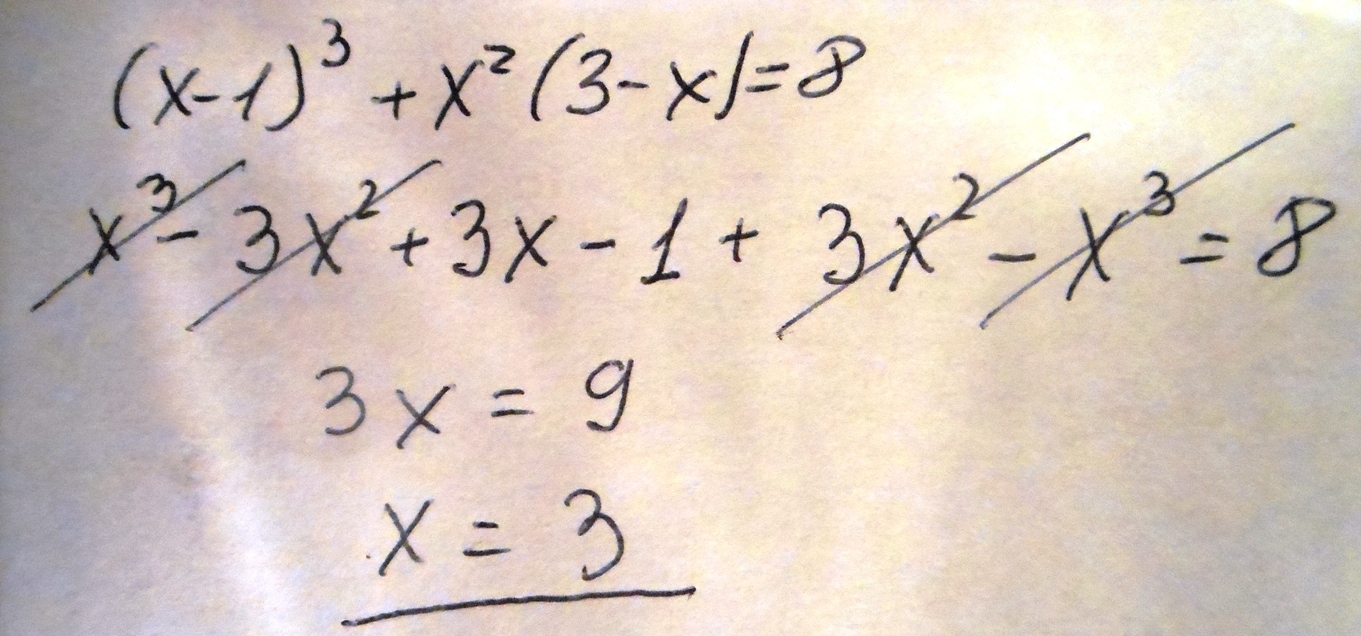 (x-1)³ + x² (3-x) = 8
x³ - 3x² + 3x - 1 + 3x² - x³ = 8
3x = 9
x = 3